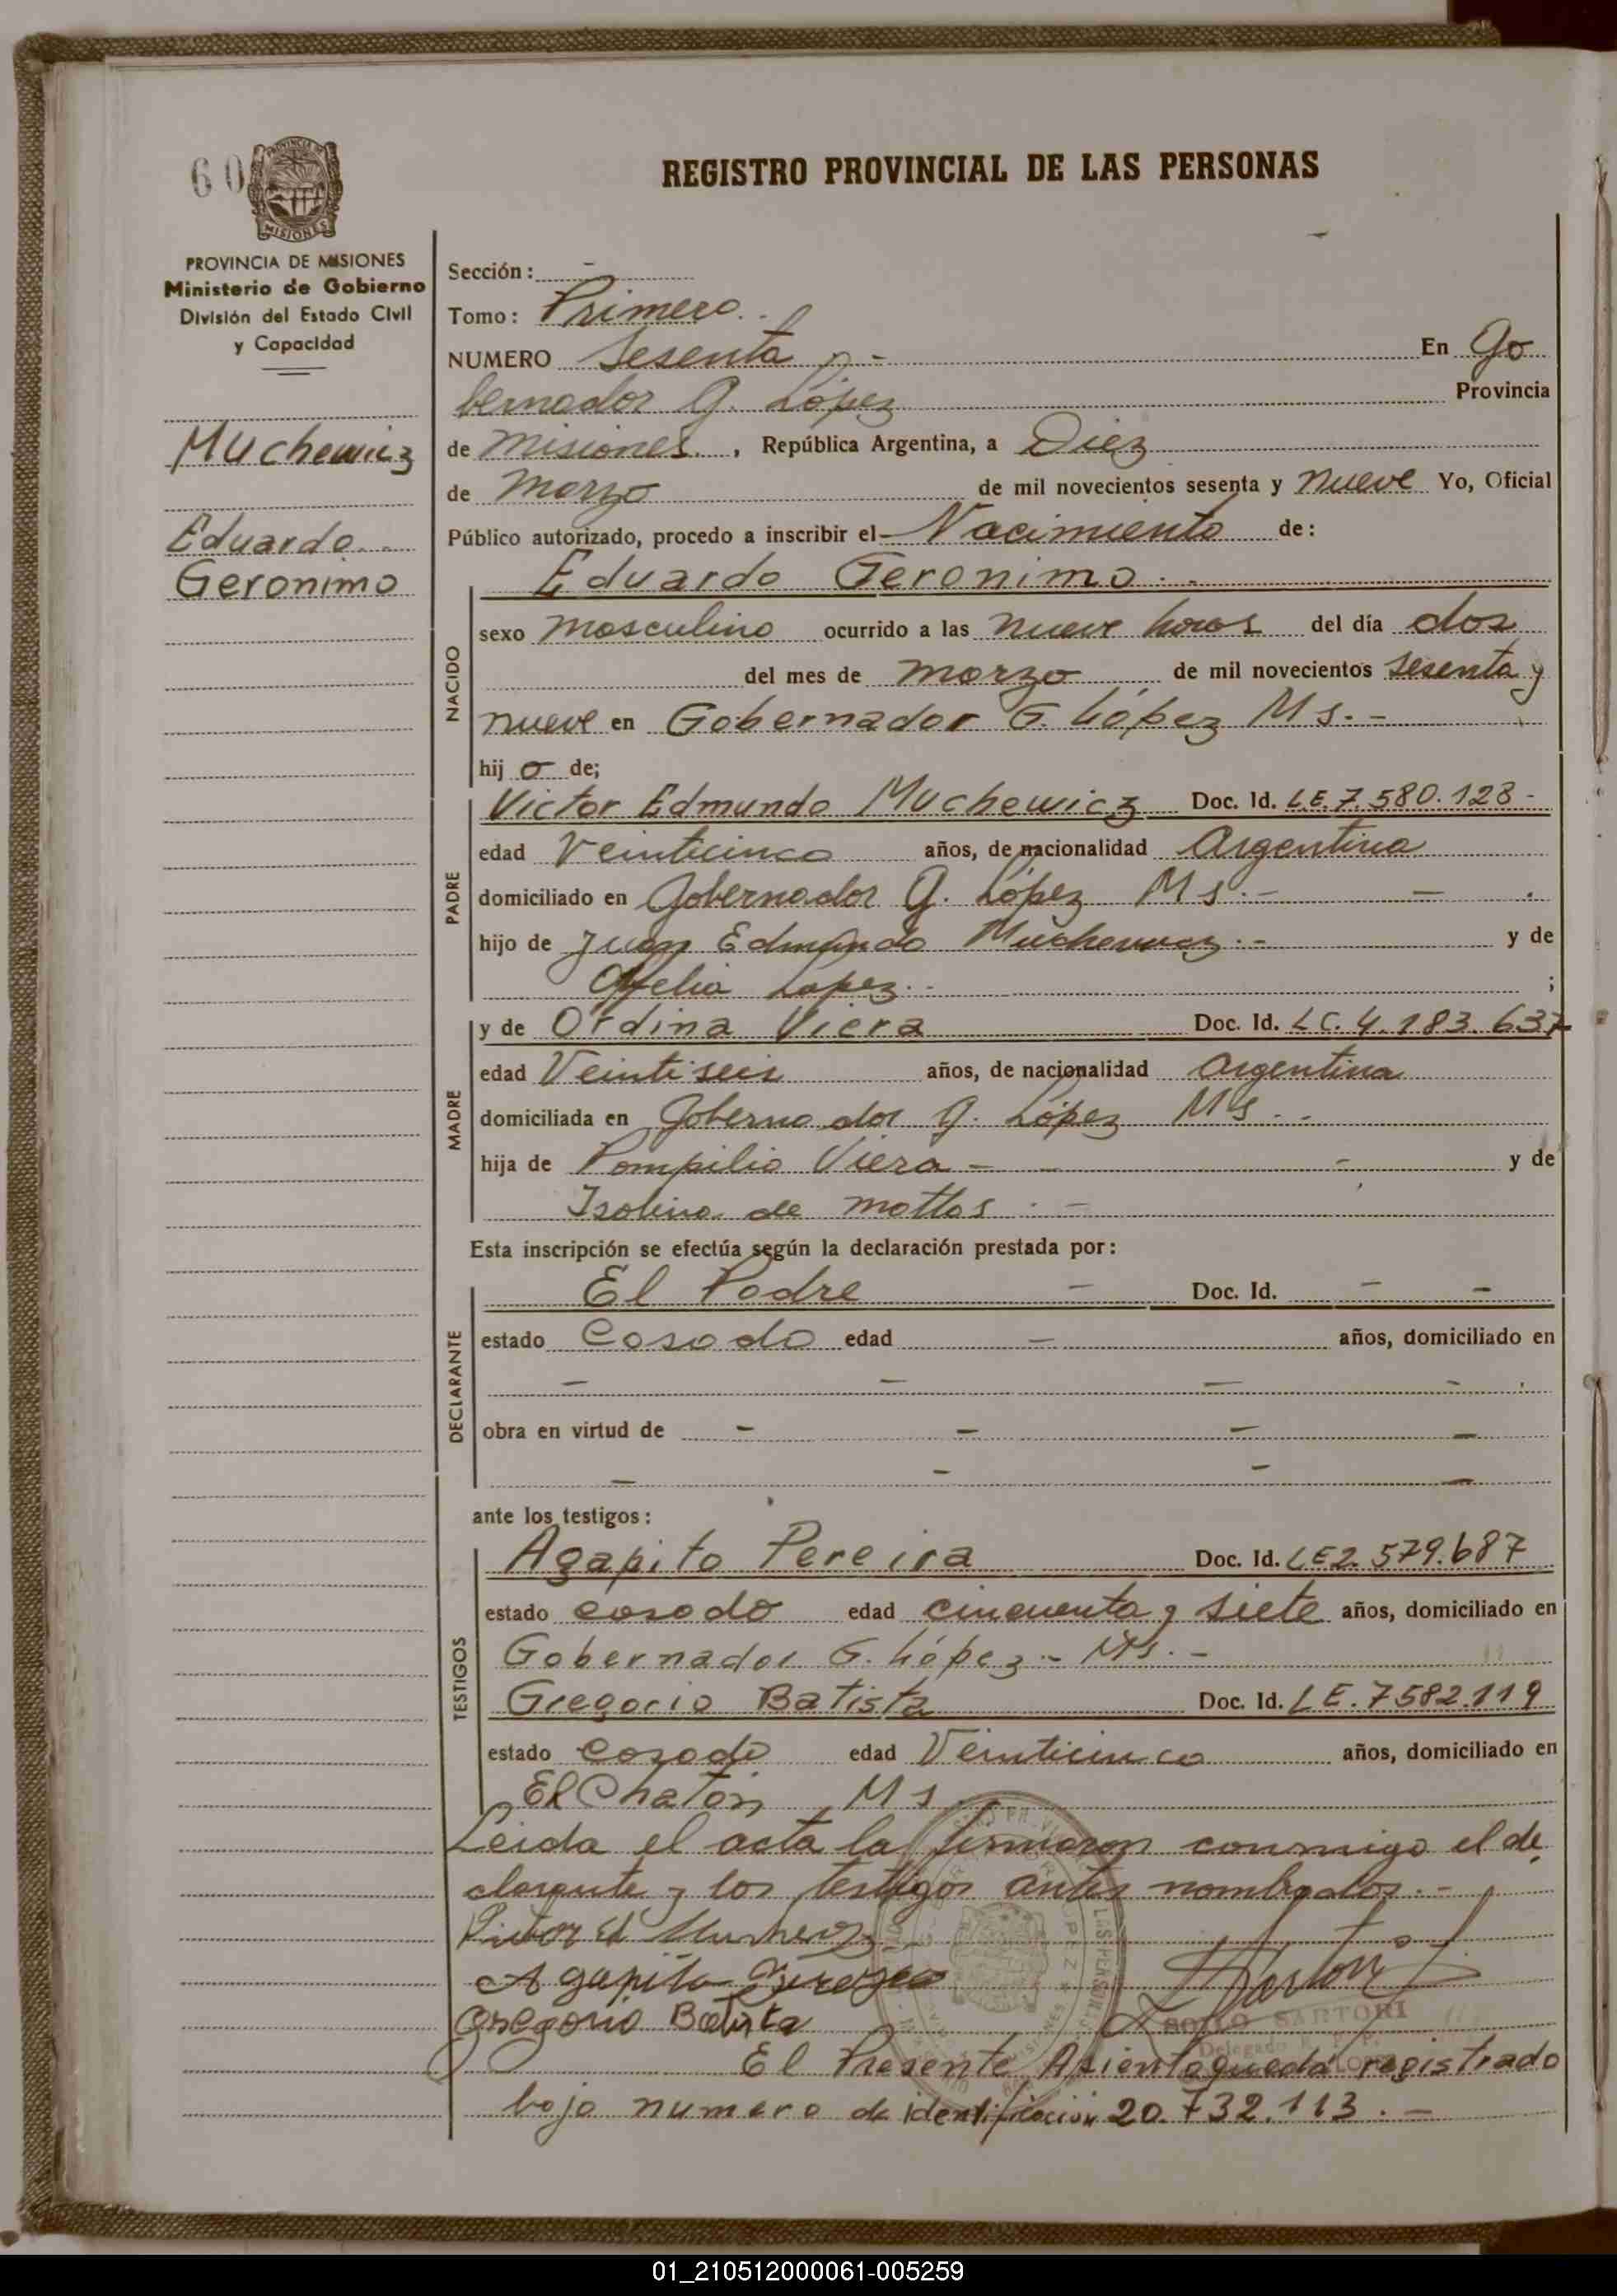 60
REGISTRO PROVINCIAL DE LAS PERSONAS
PROVINCIA DE MISIONES
Ministerio de Gobierno
División del Estado Civil
y Capacidad
Muchewicz
Eduardo
Geronimo
Sección: -
Tomo: Primero.
NUMERO Sesenta.- En Go
bernador G. López Provincia
de Misiones, República Argentina, a Diez
de Marzo de mil novecientos sesenta y nueve Yo, Oficial
Público autorizado, procedo a inscribir el Nacimiento de:
NACIDO
Eduardo Geronimo.-
sexo masculino ocurrido a las nueve horas del día dos
del mes de marzo de mil novecientos sesenta y
nueve en Gobernador G. López Ms.-
hij o de;
PADRE
Victor Edmundo Muchewicz Doc. Id. L.E.7.580.128-
edad Veinticinco años, de nacionalidad Argentina
domiciliado en Gobernador G. López Ms.- -
hijo de Juan Edmundo Muchewicz.- y de
Offelia Lopez.- ;
MADRE
y de Ordina Viera Doc. Id. LC.4.183.637
edad Veintiseis años, de nacionalidad Argentina
domiciliada en Gobernador G. López Ms.-
hija de Pompilio Viera - - - y de
Isolina de mattos.-
Esta inscripción se efectúa según la declaración prestada por:
DECLARANTE
El Padre - Doc. Id. - -
estado Casado edad - años, domiciliado en
- - - -
obra en virtud de - - - -
- - - -
ante los testigos:
TESTIGOS
Agapito Pereira Doc. Id. LE2.579.687
estado casado edad cincuenta y siete años, domiciliado en
Gobernador G. López.- Ms.-
Gregorio Batista Doc. Id. LE.7582.119
estado casado edad Veinticinco años, domiciliado en
El Chatón Ms
Leida el acta la firmaron conmigo el de
clarante y los testigos antes nombrados.-
Agapito Pereira
Gregorio Batista
SARTORI
Delegado
El Presente Asiento queda registrado
bajo numero de identificación 20.732.113.-
01_210512000061-005259